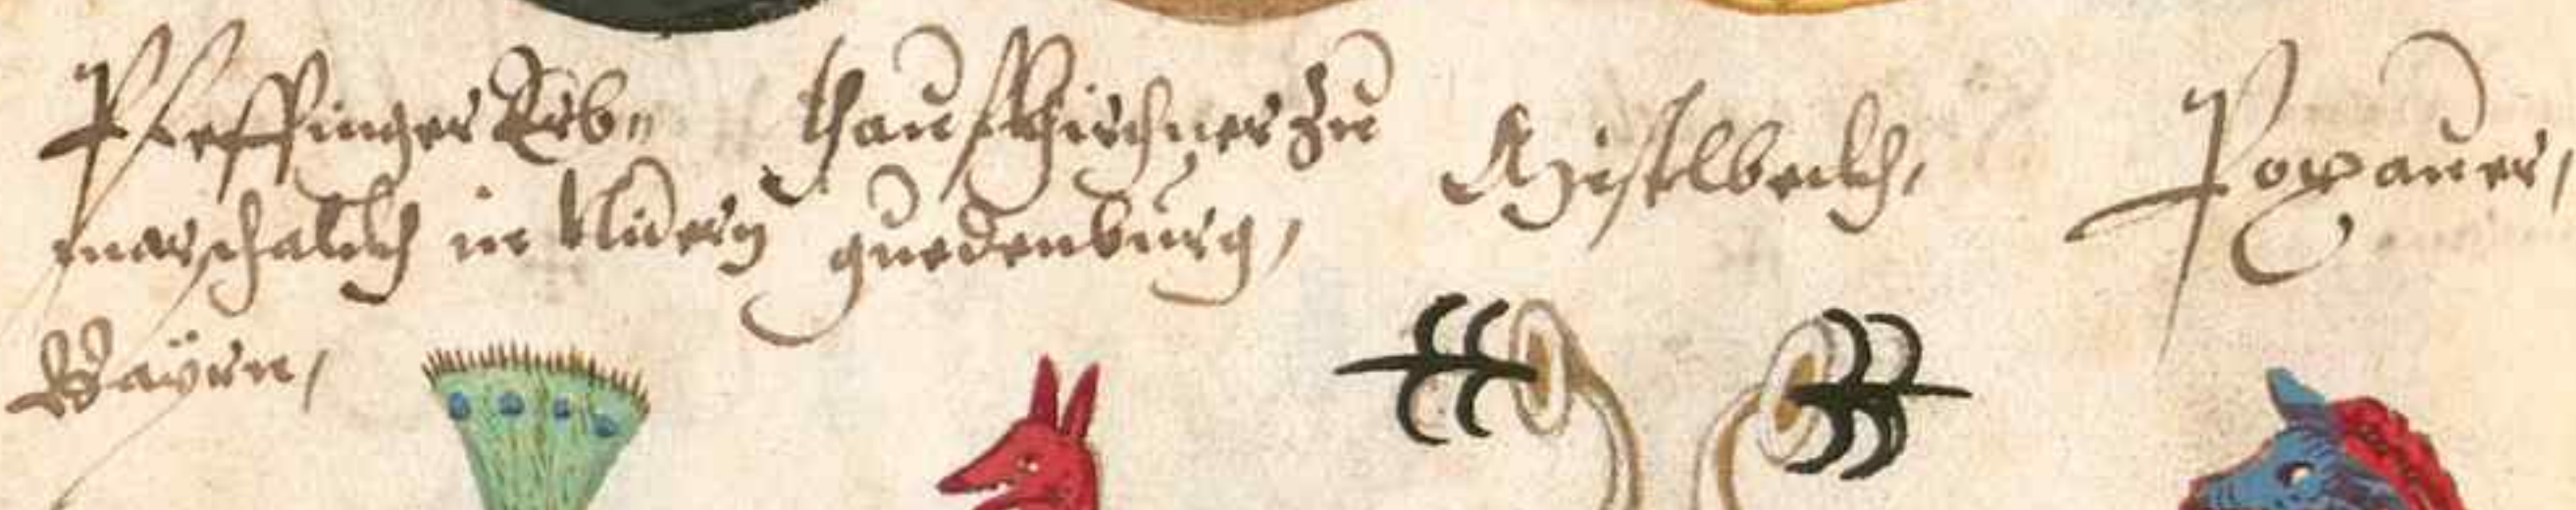 Pfeffinger Erb=
marschalckh in Nidern
Bayrn,
Hauskhirchner zu
guedenburg,
Mistlbeckh,
Poxauer,